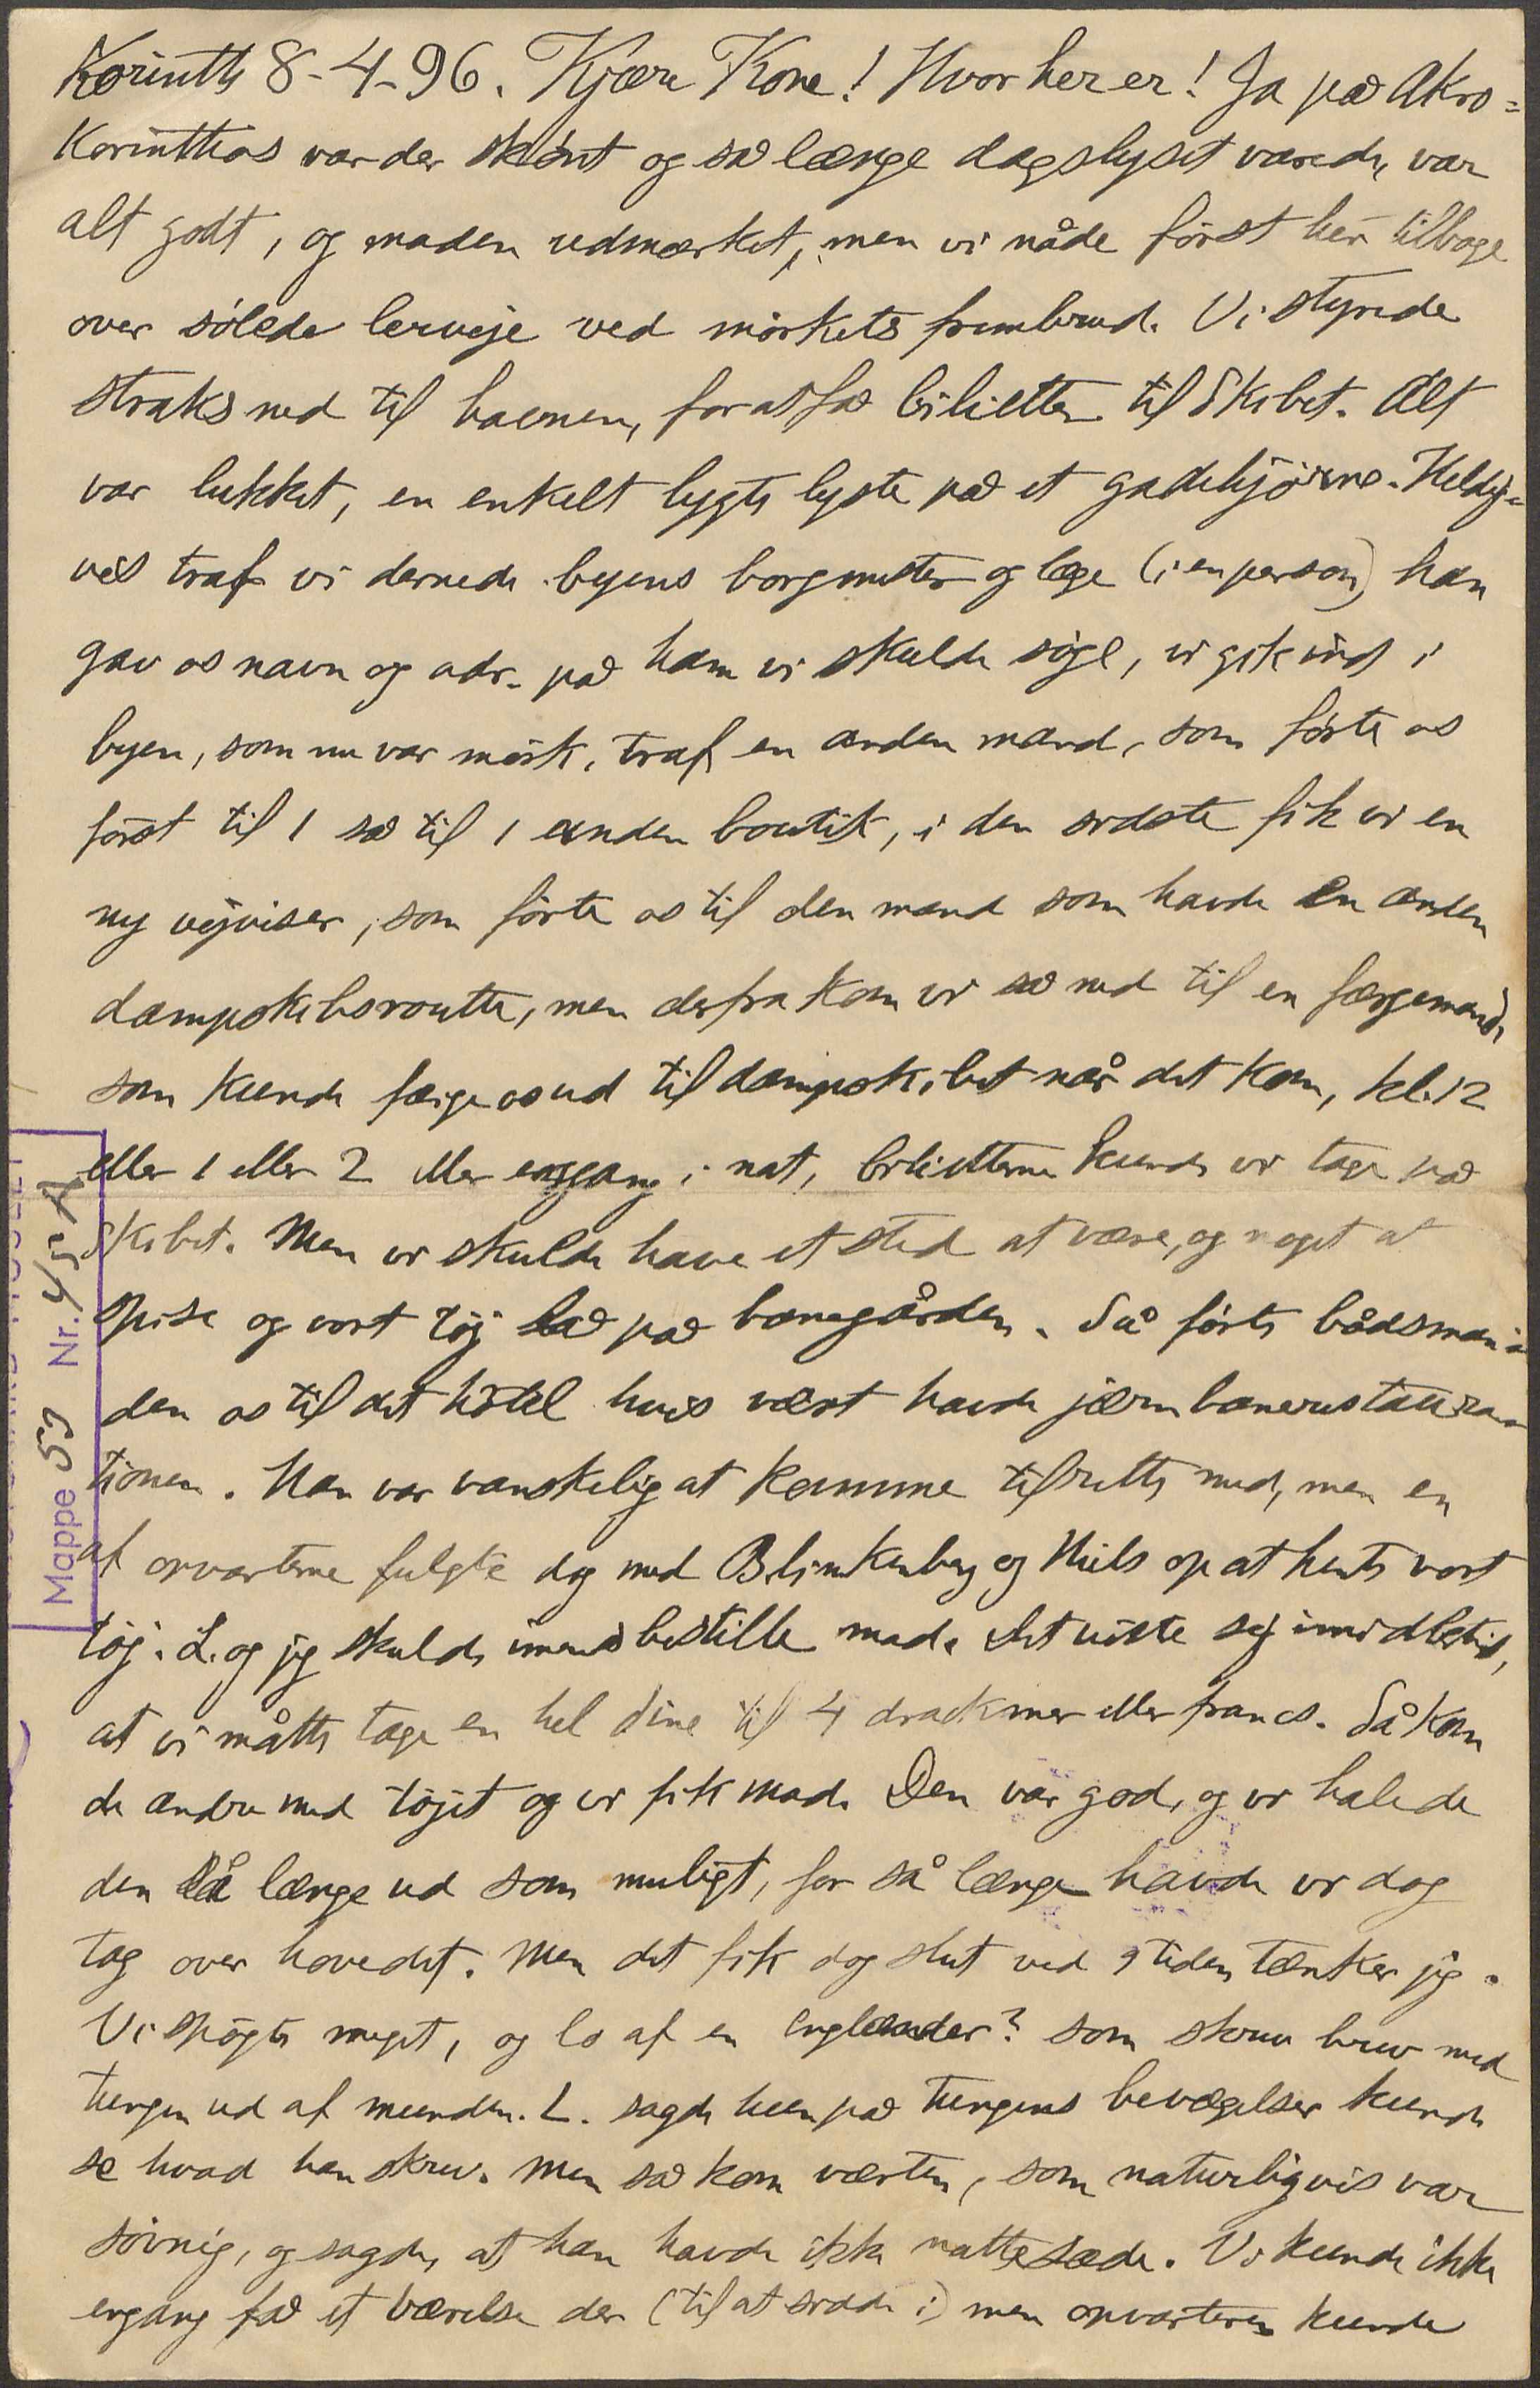 Korinth 8-4-96. Kjære Kone! Hvor her er! Ja på Akro=
Korinthos var der skönt og så længe dagslyset varede, var
alt godt, og maden udmærket, men vi nåde først her tilbage
over sølede lerveje ved mørkets frembrud. Vi styrede
straks ned til havnen, for at få billetter til Skibet. Alt
var lukket, en enkelt lygte lyste på et gadehjörne. Heldig=
vis traf vi dernede byens borgmester og læge (i en person) han
gav os navn og adr. på ham vi skulde søge, vi gik ind i
byen, som nu var mørk, traf en anden mand, som førte os
først til 1 så til 1 anden boutik, i den sidste fik vi en
ny vejviser, som førte os til den mand som havde en anden
dampskibsroutte, men derfra kom vi så ned til en færgemand,
som kunde færge os ud til dampskibet når det kom, kl. 12
eller 1 eller 2 eller engang i nat, billetterne kunde vi tage på
Skibet. Men vi skulde have et sted at være, og noget at
spise og vort tøj lå på banegården. Så førte bådsman=
den os til det hôtel hvis vært havde jærnbanerestaura=
tionen. Han var vanskelig at komme tilrette med, men en
af opvarterne fulgte dog med Blinkenberg og Niels op at hente vort
tøj. L. og jeg skulde imens bestille mad. Det viste sig imidlertid,
at vi måtte tage en hel dine til 4 drackmer eller francs. Så kom
de andre med tøjet og vi fik mad. Den var god, og vi halede
den så længe ud som muligt, for så længe havde vi dog
tag over hovedet. Men det fik dog slut ved 9 tiden tænker jeg.
Vi spøgte meget, og lo af en Englænder? som skrev brev med
tungen ud af munden. L. sagde hun på tungens bevægelser kunde
se hvad han skrev. Men så kom værten, som naturligvis var
søvnig, og sagde, at han havde ikke nattesæde. Vi kunde ikke
engang få et værelse der (til at sidde i) men opvarteren kunde
Mappe 59 Nr. 45 A